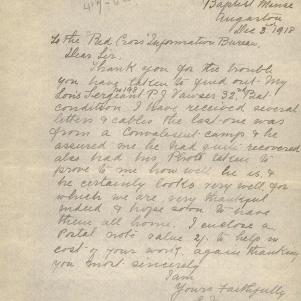 Baptist Manse
Angaston
Dec 3rd 1918
To the "Red Cross" Information Bureau.
Dear Sir.
Thank you for the trouble
you have taken to find out My
Sons Sergeant P. J. 32nd Bat.
condition I have received several
letters & cables the last one was
from a Convalescent camp & he
assured me he had quite recovered
also had his Photo taken to
prove to me how well he is &
he certainly looks very well for
which we are very thankful
indeed & hope soon to have
them all home. I enclose a
Postal note value 2/- to help in
cost of your work, again thanking
you most sincerely
I am
Yours Faithfully